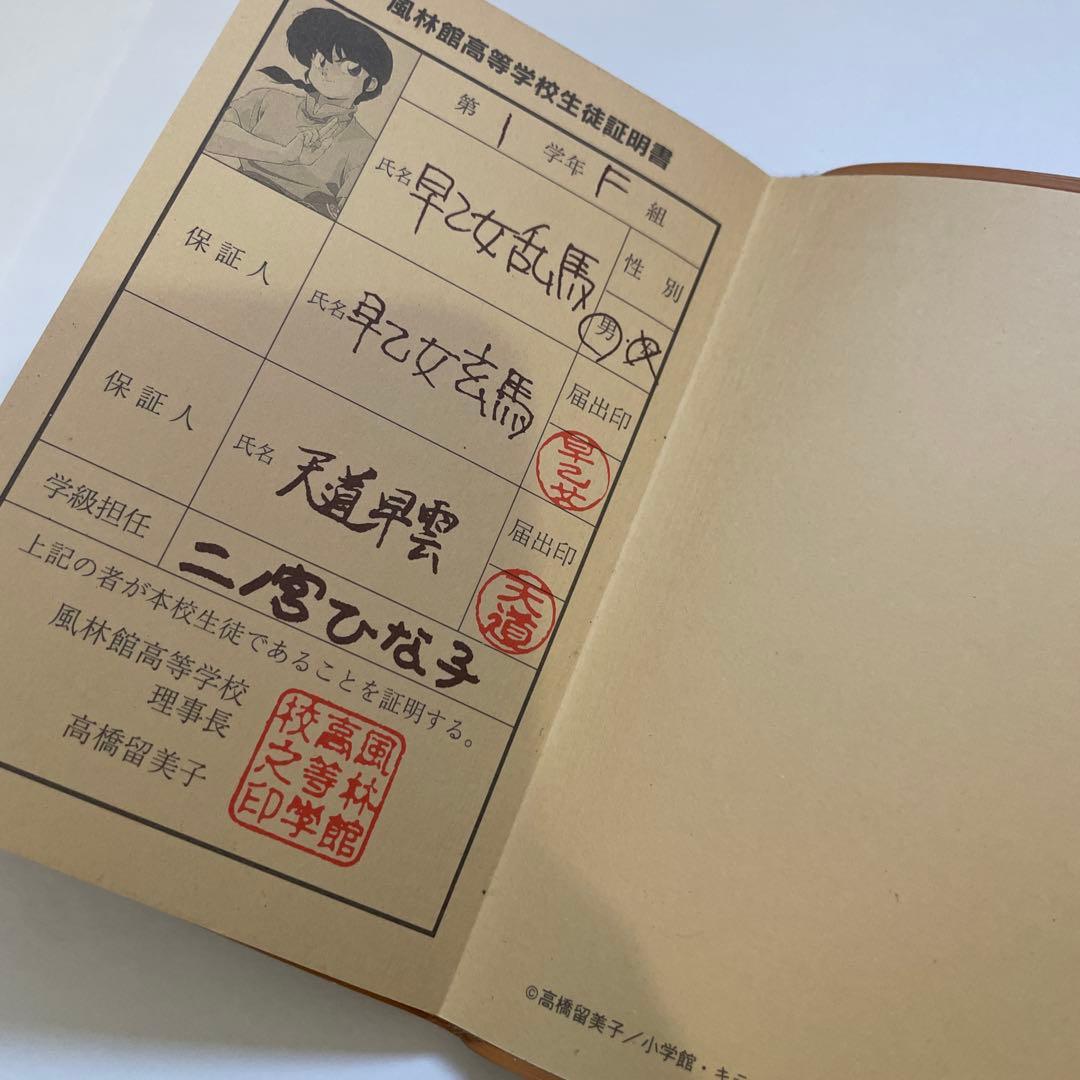 風林館高等学校生徒証明書
第 1 学年 F 組
氏名 早乙女乱馬
性別
男・女
保証人
氏名 早乙女玄馬
届出印
早乙女
保証人
氏名 天道早雲
届出印
天道
学級担任
二ノ宮ひな子
上記の者が本校生徒であることを証明する。
風林館高等学校
理事長
高橋留美子
風林館
高等学
校之印
©高橋留美子／小学館・キ